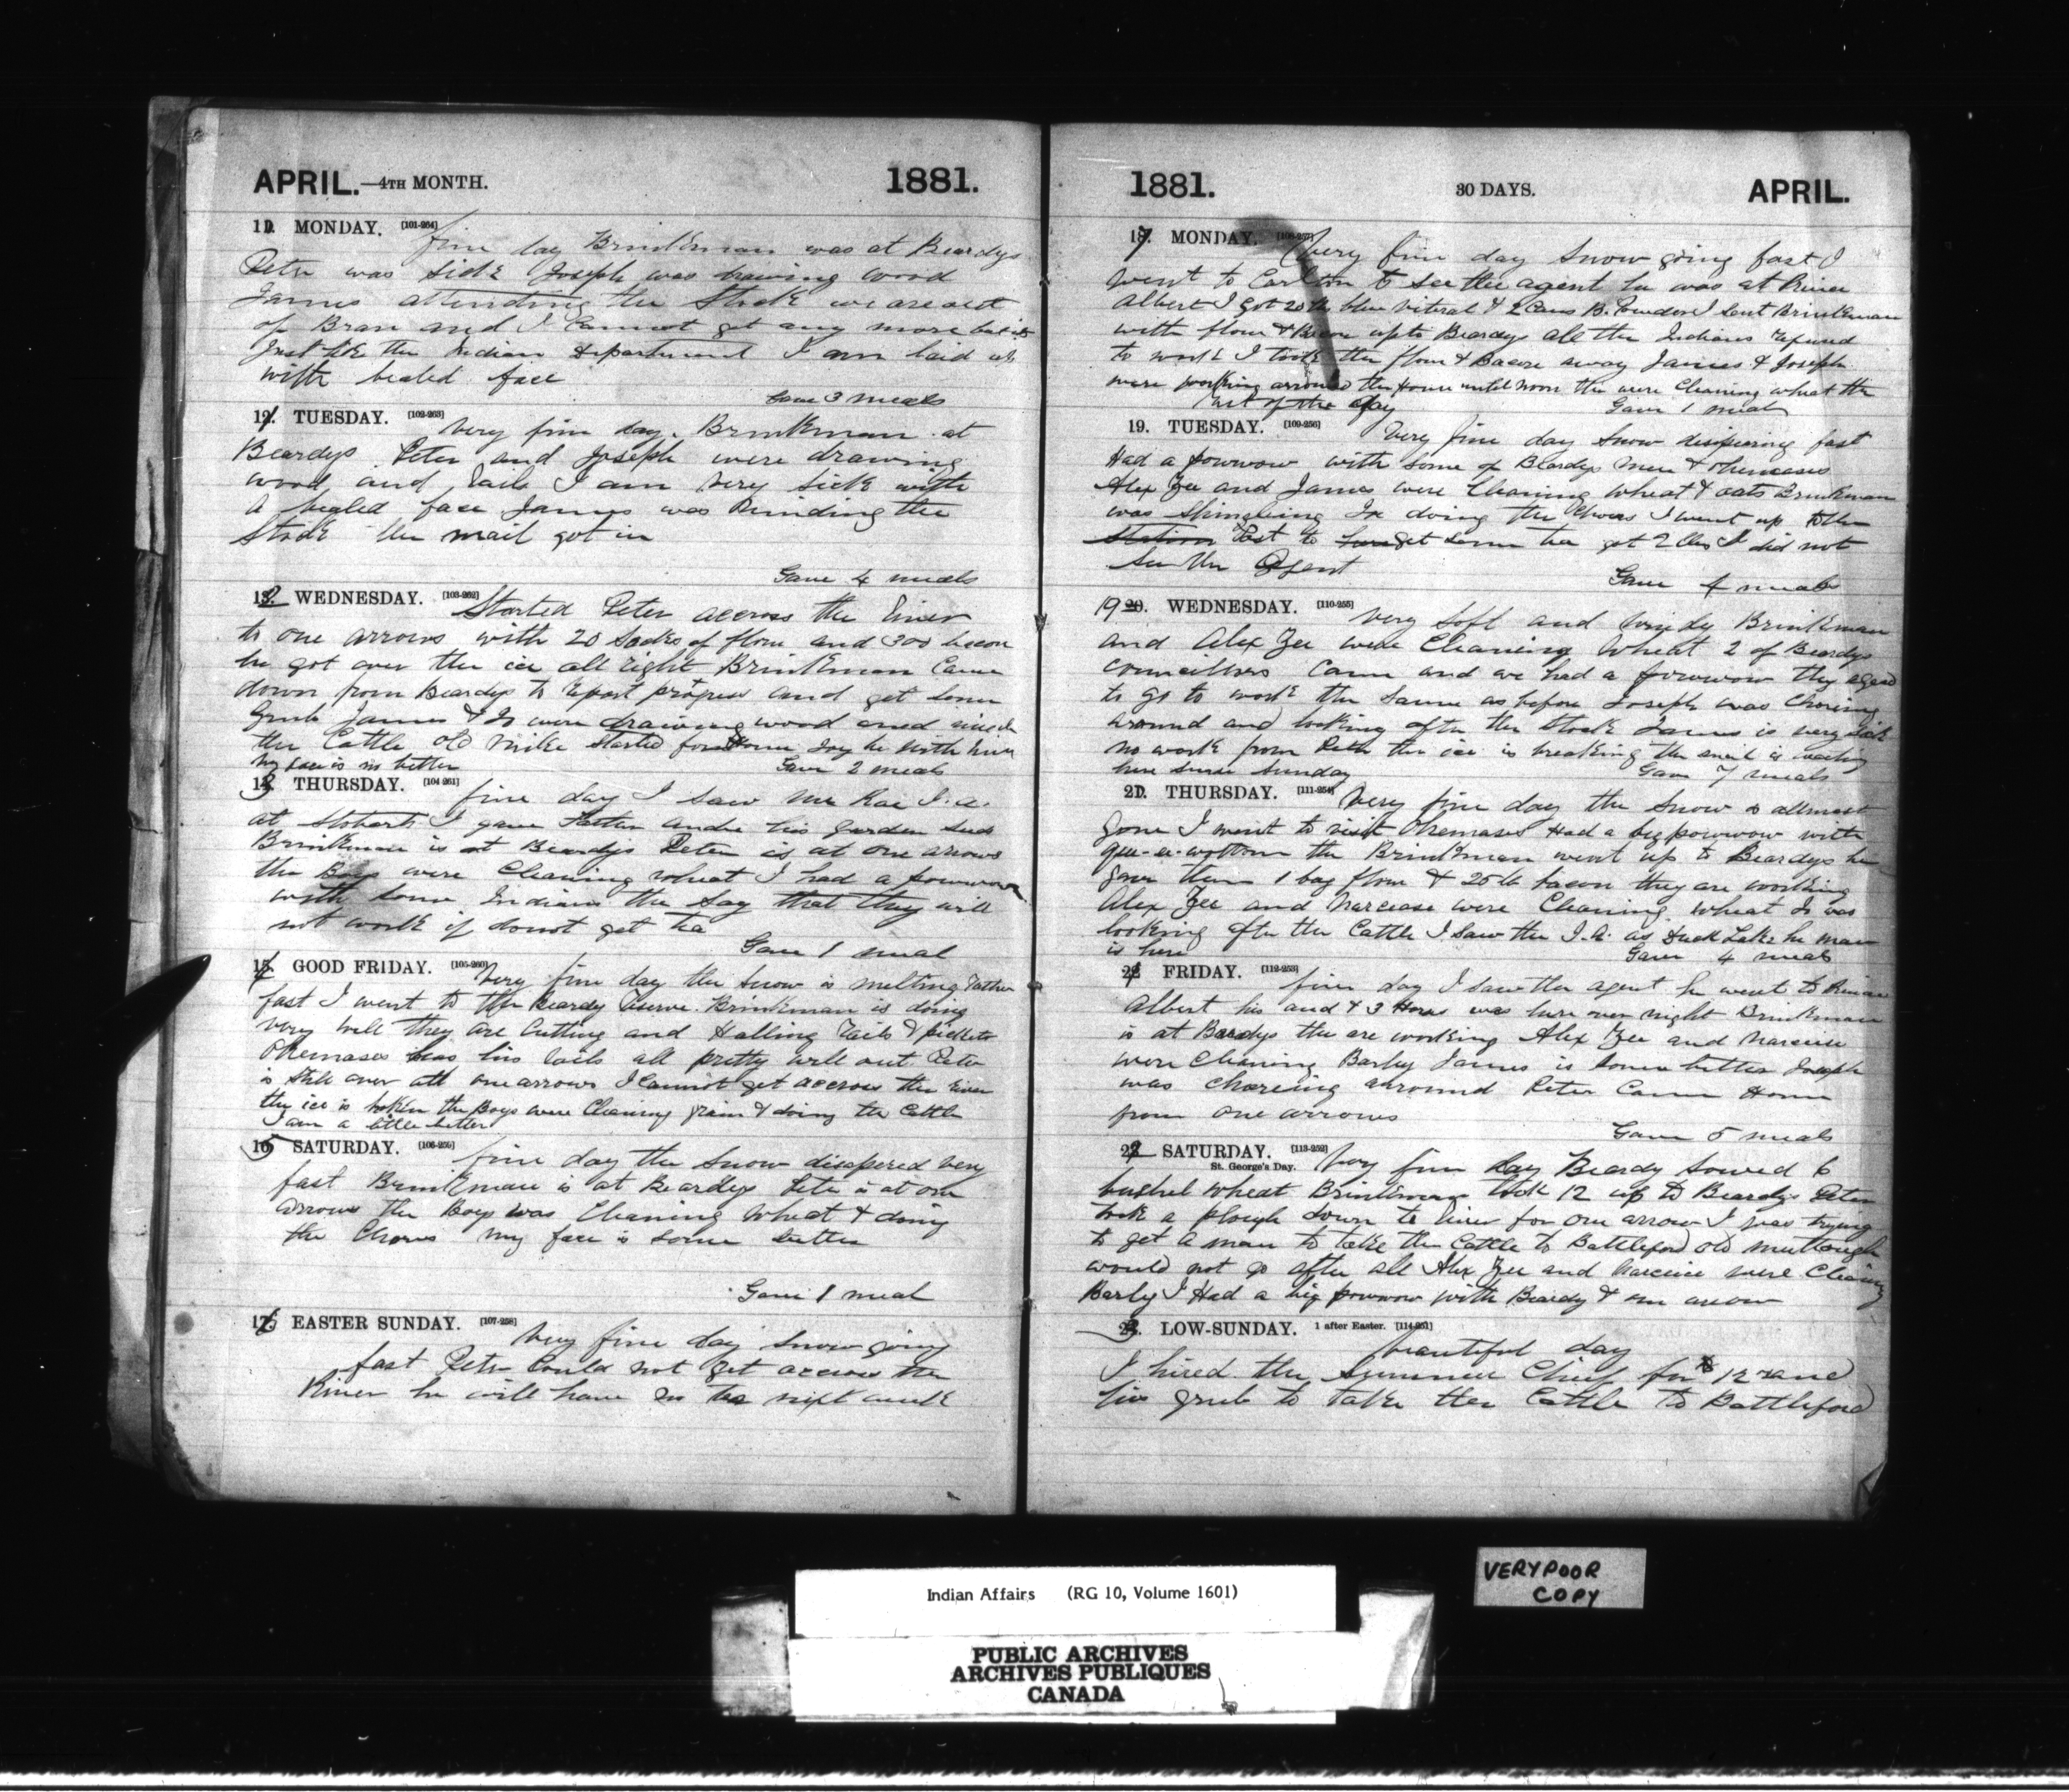 APRIL.—4TH MONTH. 1881.
11. MONDAY. [101-264] fine day Brinkman was at Beardys
Peter was sick Joseph was drawing wood
James attending the Stock we are out
of Bran and I cannot get any more but its
Just like the Indian department I am laid up
with bealed face
Gave 3 meals
12. TUESDAY. [102-263] very fine day. Brinkman at
Beardys Peter and Joseph were drawing
wood and rails I am very sick with
a bealed face James was minding the
Stock the mail got in
Gave 4 meals
13. WEDNESDAY. [103-262] Started Peter accross the River
to one arrows with 20 Sacks of flour and 300 bacon
he got over the ice all right Brinkman Came
down from Beardys to report progress and get some
Grub James & Jo were drawing wood and
the Cattle old Mike Started for Home Joy be with him
my face is no better Gave 2 meals
14. THURSDAY. [104-261] fine day I saw Mr Rae I.A.
at Stobarts I gave his garden seed
Brinkman is at Beardys Peter is at one arrows
the Boys were Cleaning wheat I had a powwow
with some Indians the Say that they will
not work if donot get tea
Gave 1 meal
15. GOOD FRIDAY. [105-260] very fine day the snow is melting rather
fast I went to the Beardy Reserve. Brinkman is doing
very well they are Cutting and Halling rails & pickets
Okemases has his rails all pretty well out Peter
is still over att one arrows I Cannot get accross the River
the ice is broken the Boys were Cleaning grain & doing the Cattle
I am a little better
16. SATURDAY. [106-259] fine day the Snow disapered very
fast Brinkman is at Beardys Peter is at one
arrows the Boys was Cleaning Wheat & doing
the Chores my face is some better
Gave 1 meal
17. EASTER SUNDAY. [107-258] very fine day Snow going
fast Peter Could not get accross the
River he will have no tea next week
1881. 30 DAYS. APRIL.
18. MONDAY. [108-257] very fine day Snow going fast I
went to Carlton to see the agent he was at Prince
Albert I got 20 lb blue vitral & 2 Cans B. Powder I sent Brinkman
with flour & Bacon up to Beardys all the Indians refused
to work I took the flour & Bacon away James & Joseph
were working arround the House until noon the were Cleaning wheat the
rest of the day Gave 1 meal
19. TUESDAY. [109-256] Very fine day Snow disapering fast
Had a powwow with some of Beardys men & Okemases
Alex Zee and James were Cleaning Wheat & oats Brinkman
was Shingleing Jo doing the Chores I went up to the
Station Post to get some tea got 2 lbs I did not
See the Agent Gave 4 meals
19 20. WEDNESDAY. [110-255] very Soft and windy Brinkman
and Alex Zee were Cleaning Wheat 2 of Beardys
Councillors Came and we had a powwow they agead
to go to work the same as before Joseph was Choreing
around and looking after the Stock James is very sick
no work from Peter the ice is breaking the mail is waiting
here since Sunday Gave 7 meals
21. THURSDAY. [111-254] Very fine day the Snow is allmost
gone I went to visit Okemases Had a big powwow with
the Brinkman went up to Beardys he
gave them 1 bag flour & 25 lb bacon they are working
Alex Zee and Narcease were Cleaning wheat Jo was
looking after the Cattle I Saw the I.A. at Duck Lake he man
is here Gave 4 meals
22. FRIDAY. [112-253] fine day I saw the agent he went to Prince
Albert his and & 3 Horses was here over night Brinkman
is at Beardys the are working Alex Zee and Narcise
were Cleaning Barley James is some better Joseph
was Choreing arround Peter Came Home
from one arrows
Gave 5 meals
23. SATURDAY. [113-252] St. George's Day. Very fine day Beardy Sowed 6
bushel wheat Brinkman took 12 up to Beardys Peter
took a plough down to River for one arrow I was trying
to get a man to take the Cattle to Battleford old
would not go after all Alex Zee and Narcise were Cleaning
Barly I Had a big powwow with Beardy & one arrow
24. LOW-SUNDAY. 1 after Easter. [114-251]
beautiful day
I hired the Summer Chief for $12 and
his grub to take the Cattle to Battleford
VERY POOR
COPY
Indian Affairs (RG 10, Volume 1601)
PUBLIC ARCHIVES
ARCHIVES PUBLIQUES
CANADA